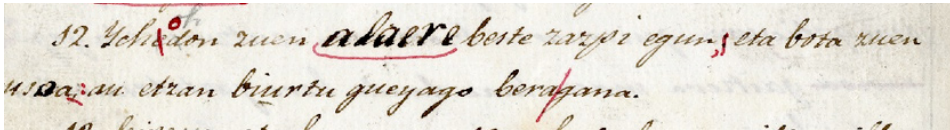 12. Ichedon zuen alaere beste zazpi egun; eta bota zuen
usoa: au etzan biurtu gueyago beragana.